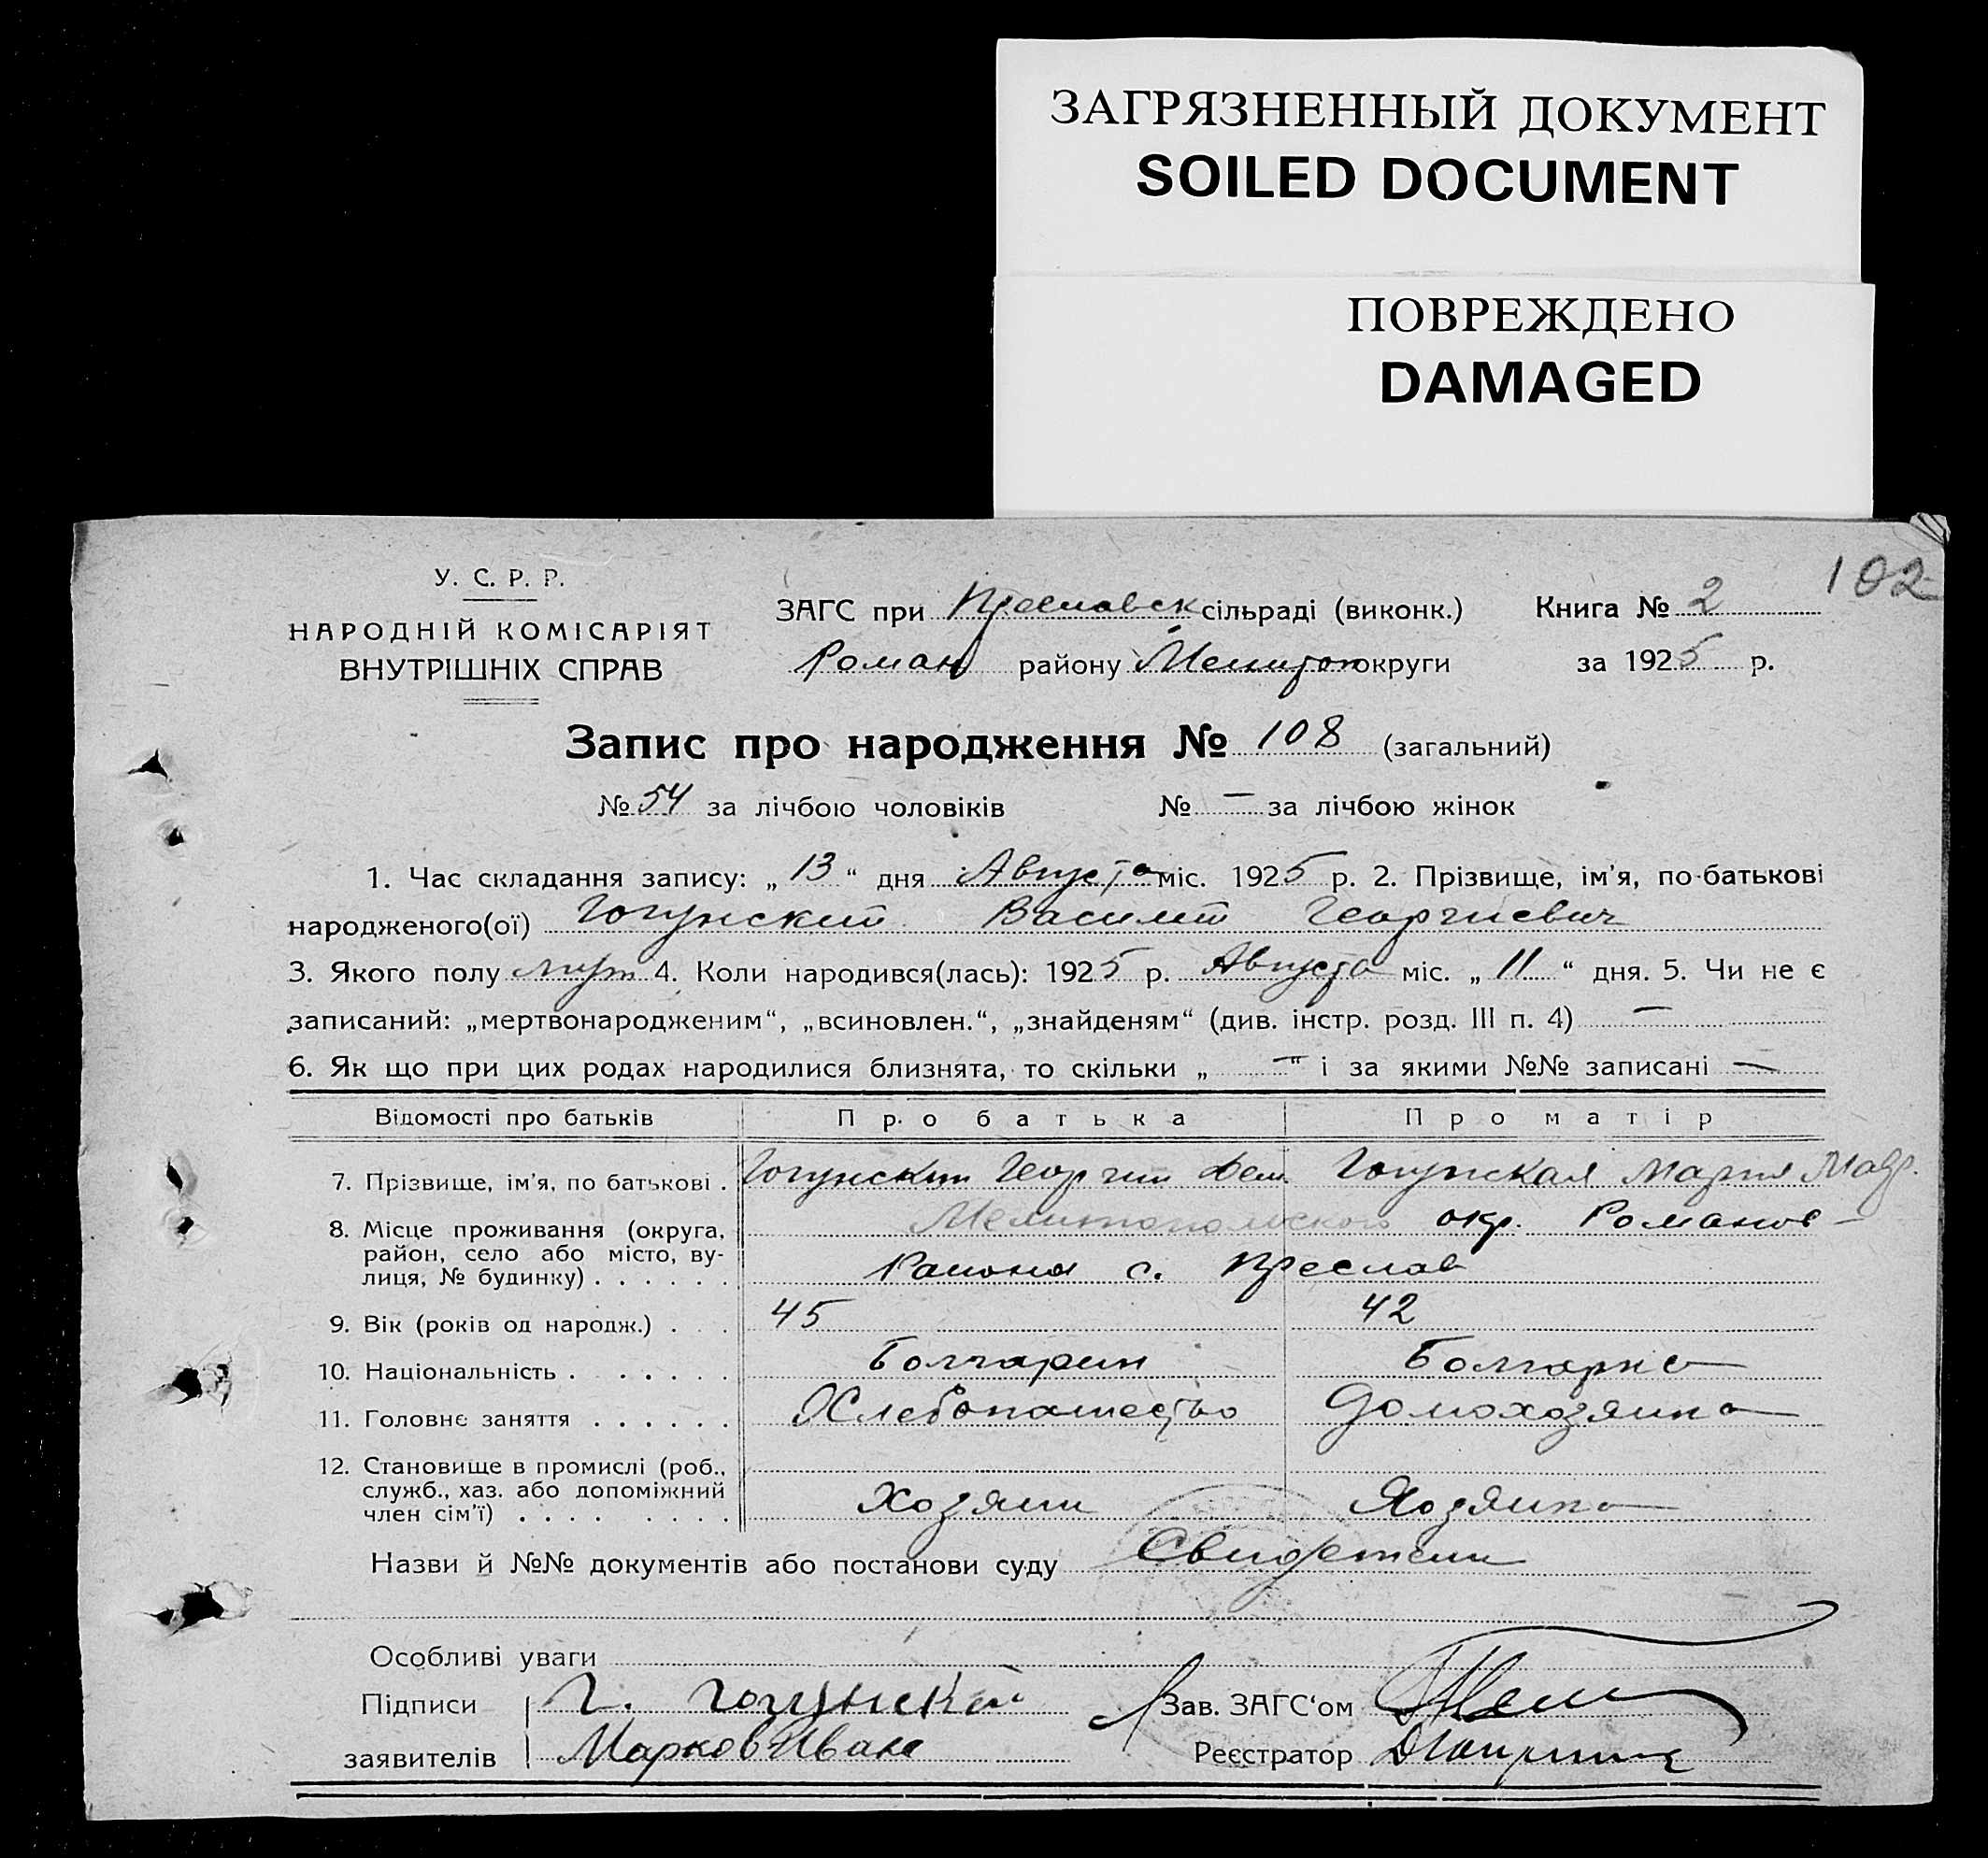 ЗАГРЯЗНЕННЫЙ ДОКУМЕНТ
SOILED DOCUMENT
ПОВРЕЖДЕНО
DAMAGED
102
У. С. Р. Р.
НАРОДНІЙ КОМІСАРІЯТ
ВНУТРІШНІХ СПРАВ
ЗАГС при Преславск сільраді (виконк.) Книга № 2
Роман району Мелитоп округи за 1925 р.
Запис про народження № 108 (загальний)
№ 54 за лічбою чоловіків № — за лічбою жінок
1. Час складання запису: „ 13 “ дня Августа міс. 1925 р. 2. Прізвище, ім'я, по-батькові
народженого(ої) Гогунский Василий Георгиевич
3. Якого полу муж 4. Коли народився(лась): 1925 р. Августа міс. „ 11 “ дня. 5. Чи не є
записаний: „мертвонародженим“, „всиновлен.“, „знайденям“ (див. інстр. розд. III п. 4) —
6. Як що при цих родах народилися близнята, то скільки „ — “ і за якими №№ записані —
Відомості про батьків Про батька Про матір
7. Прізвище, ім'я, по батькові . Гогунский Георгий Дем. Гогунская Мария Мавр.
8. Місце проживання (округа, Мелитопольского окр. Романов-
район, село або місто, ву-
лиця, № будинку) . . . . . . Района с. Преслав
9. Вік (років од народж.) . . . 45 42
10. Національність . . . . . . Болгарин Болгарка
11. Головнє заняття . . . . . . Хлебопашество Домохозяйка
12. Становище в промислі (роб.,
служб., хаз. або допоміжний
член сім'ї) . . . . . . . . Хозяин Хозяйка
Назви й №№ документів або постанови суду Свидетели
Особливі уваги
Підписи Г. Гогунский Зав. ЗАГС‘ом
заявителів Марков Иван Реєстратор